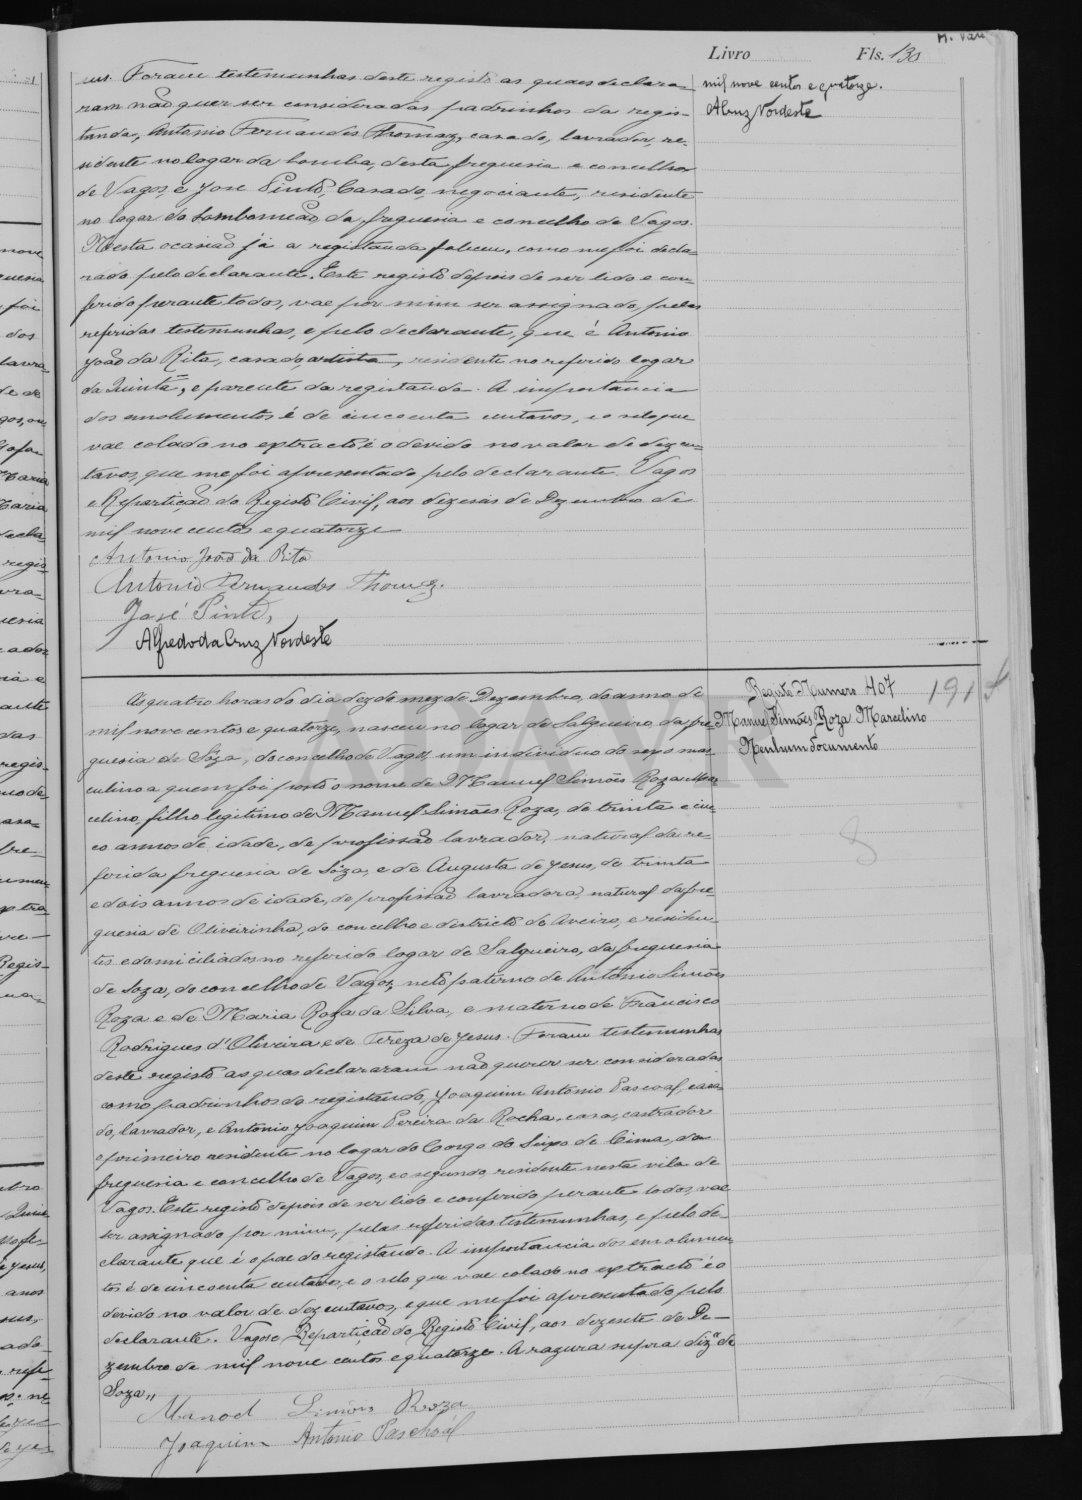 M. Vaz
Livro Fls. 130
us. Foram testemunhas deste registo as quaes declara-
ram não quer ser consideradas padrinhos da regis-
tanda, Antonio Fernandes Thomaz, casado, lavrador, re-
sidente no logar da Lomba, desta freguesia e concelho
de Vagos, e José Pinto, Casado, negociante, residente
no logar do Lombomeão da freguesia e concelho de Vagos.
Nesta ocasião já a registanda faleceu, como me foi decla-
rado pelo declarante. Este registo depois de ser lido e con-
ferido perante todos, vae por mim ser assignado, pelas
referidas testemunhas, e pelo declarante, que é Antonio
João da Rita, casado, artista, residente no referido logar
da Quintã, e parente da registanda. A importancia
dos emolumentos é de cincoenta centavos, e o selo que
vae colado no extracto é o devido no valor de dez cen-
tavos, que me foi apresentado pelo declarante. Vagos
e Repartição do Registo Civil, aos dezeseis de Dezembro de
mil nove centos e quatorze
Antonio João da Rita
Antonio Fernandes Thomaz.
José Pinto,
Alfredo da Cruz Nordeste
mil nove centos e quatorze.
ACruz Nordeste
Registo Numero 407 1914
Manuel Simões Roza Marcelino
Nenhum documento
As quatro horas do dia dez do mez de Dezembro, do anno de
mil nove centos e quatorze, nasceu no logar de Salgueiro, da fre-
guesia de Sôza, do concelho de Vagos, um individuo do sexo mas-
culino a quem foi posto o nome de Manuel Simões Roza Mar-
celino, filho legitimo de Manuel Simões Roza, de trinta e cin-
co annos de idade, de profissão lavrador, natural da re-
ferida freguesia de Sôza, e de Augusta de Jesus, de trinta
e dois annos de idade, de profissão lavradora, natural da fre-
guesia de Oliveirinha, do concelho e districto de Aveiro, e residen-
tes e domiciliados no referido logar de Salgueiro, da freguesia
de Soza, do concelho de Vagos, neto paterno de Antonio Simões
Roza e de Maria Roza da Silva, e materno de Francisco
Rodrigues d'Oliveira e de Tereza de Jesus. Foram testemunhas
deste registo as quaes declararam não querer ser consideradas
como padrinhos do registando, Joaquim Antonio Pascoal, casa-
do, lavrador, e Antonio Joaquim Pereira da Rocha, casa, castrador
o primeiro residente no logar do Corgo do Seixo de Cima, da
freguesia e concelho de Vagos, e o segundo, residente nesta vila de
Vagos. Este registo depois de ser lido e conferido perante todos, vae
ser assignado por mim, pelas referidas testemunhas, e pelo de-
clarante que é o pae do registando. A importancia dos emolumen-
tos é de cincoenta centavos, e o selo que vae colado no extracto é o
devido no valor de dez centavos, e que me foi apresentado pelo
declarante. Vagos e Repartição do Registo Civil, aos dezesete de De-
zembro de mil nove centos e quatorze. A razura supra diz "de
Soza"
Manoel Simões Roza
Joaquim Antonio Paschoal